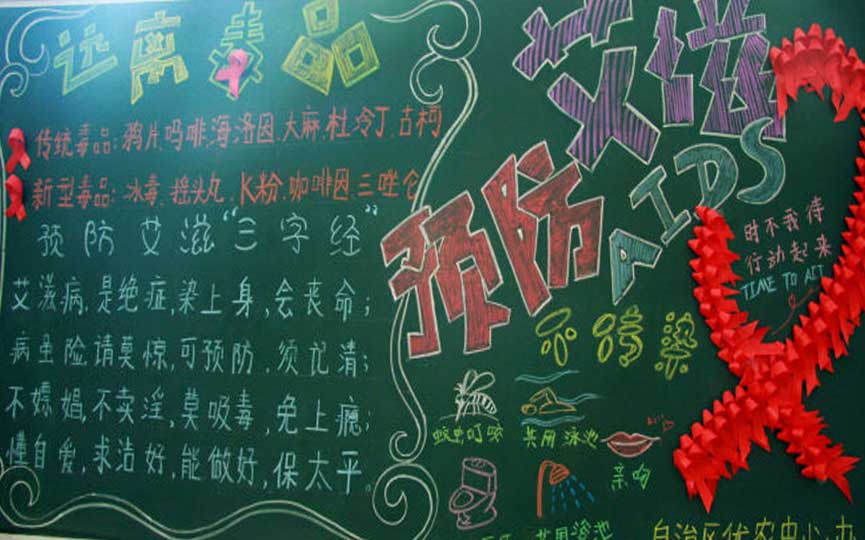 远离毒品
传统毒品:鸦片.吗啡.海洛因.大麻.杜冷丁.古柯
新型毒品:冰毒.摇头丸.K粉.咖啡因.三唑仑
预防艾滋“三字经”
艾滋病,是绝症,染上身,会丧命;
病虽险,请莫惊,可预防,须记清;
不嫖娼,不卖淫,莫吸毒,免上瘾;
懂自爱,求洁好,能做好,保太平。
艾滋
预防
AIDS
时不我待
行动起来
TIME TO AIT
不污染
蚊虫叮咬
共用泳池
亲吻
共用浴池